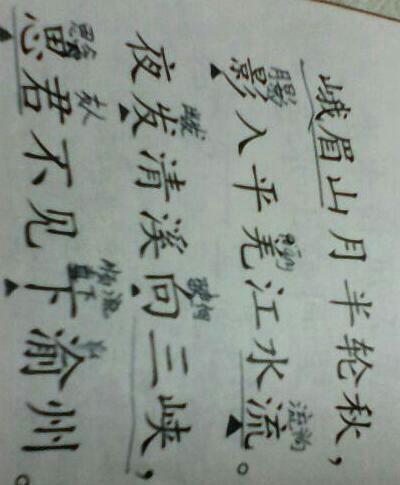 峨眉山月半轮秋,
影入平羌江水流。
月影
流淌
夜发清溪向三峡,
思君不见下渝州。
思念